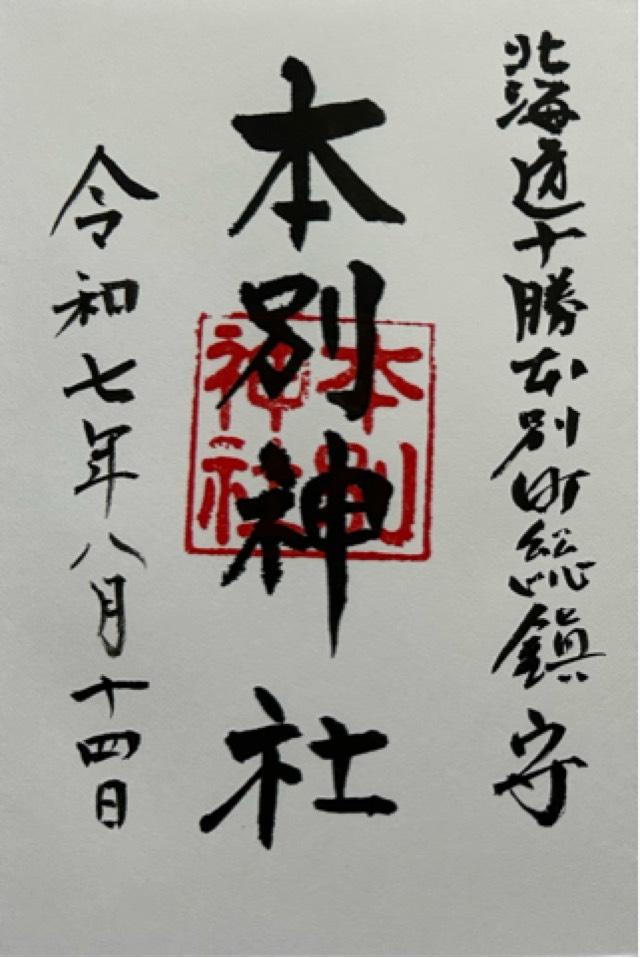 北海道十勝本別町総鎮守
本別神社
本別
神社
令和七年八月十四日